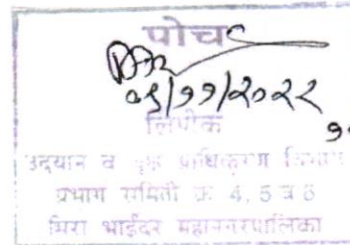 पोच
०९/११/२०२२
लिपीक
उद्यान व वृक्ष प्राधिकरण विभाग
प्रभाग समिती क्र 4, 5 व 6
मिरा भाईंदर महानगरपालिका